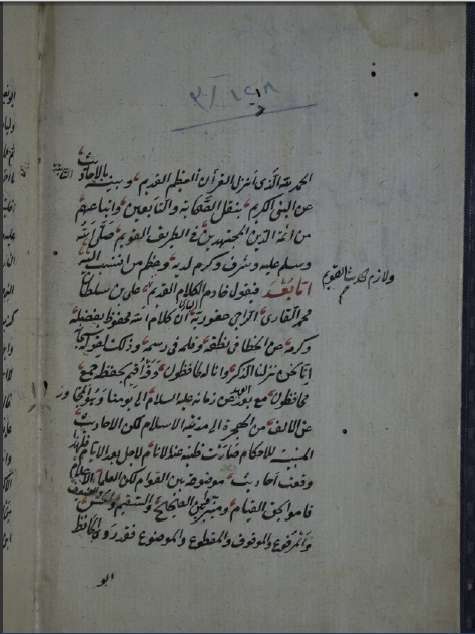 ٣/١٤١٨
الحمد لله الذي أنزل القرآن العظيم القديم وبينه بالأحاديث
عن النبي الكريم بنقل الصحابة والتابعين وأتباعهم
من أئمة الدين المجتهدين في الطريق القويم صلى الله
وسلم عليه وشرف وكرم لديه وعظم من انتسب إليه
أما بعد فيقول خادم الكلام القديم علي بن سلطان
محمد القاري الراجي عفو ربه الباري أن كلام الله محفوظ بفضله
وكرمه عن الخطأ في نطقه وقلمه في رسمه وذلك لقوله تعالى
إنا نحن نزلنا الذكر وإنا له لحافظون وقد أقيم بحفظه جمع
محافظون مع بعد العهد عن زمانه عليه السلام إلى يومنا
عن الألف من الهجرة إلى مدينة الإسلام لكن الأحاديث
المبينة للأحكام صارت ظنية عند الأنام لأجل بعد الأيام
وقعت أحاديث موضوعة بين العوام لكن العلماء الأعلام
قاموا حق القيام وميزوا بين الصحيح والسقيم والحسن والضعيف
والمرفوع والموقوف والمقطوع والموضوع فقد روى الحافظ
ابو